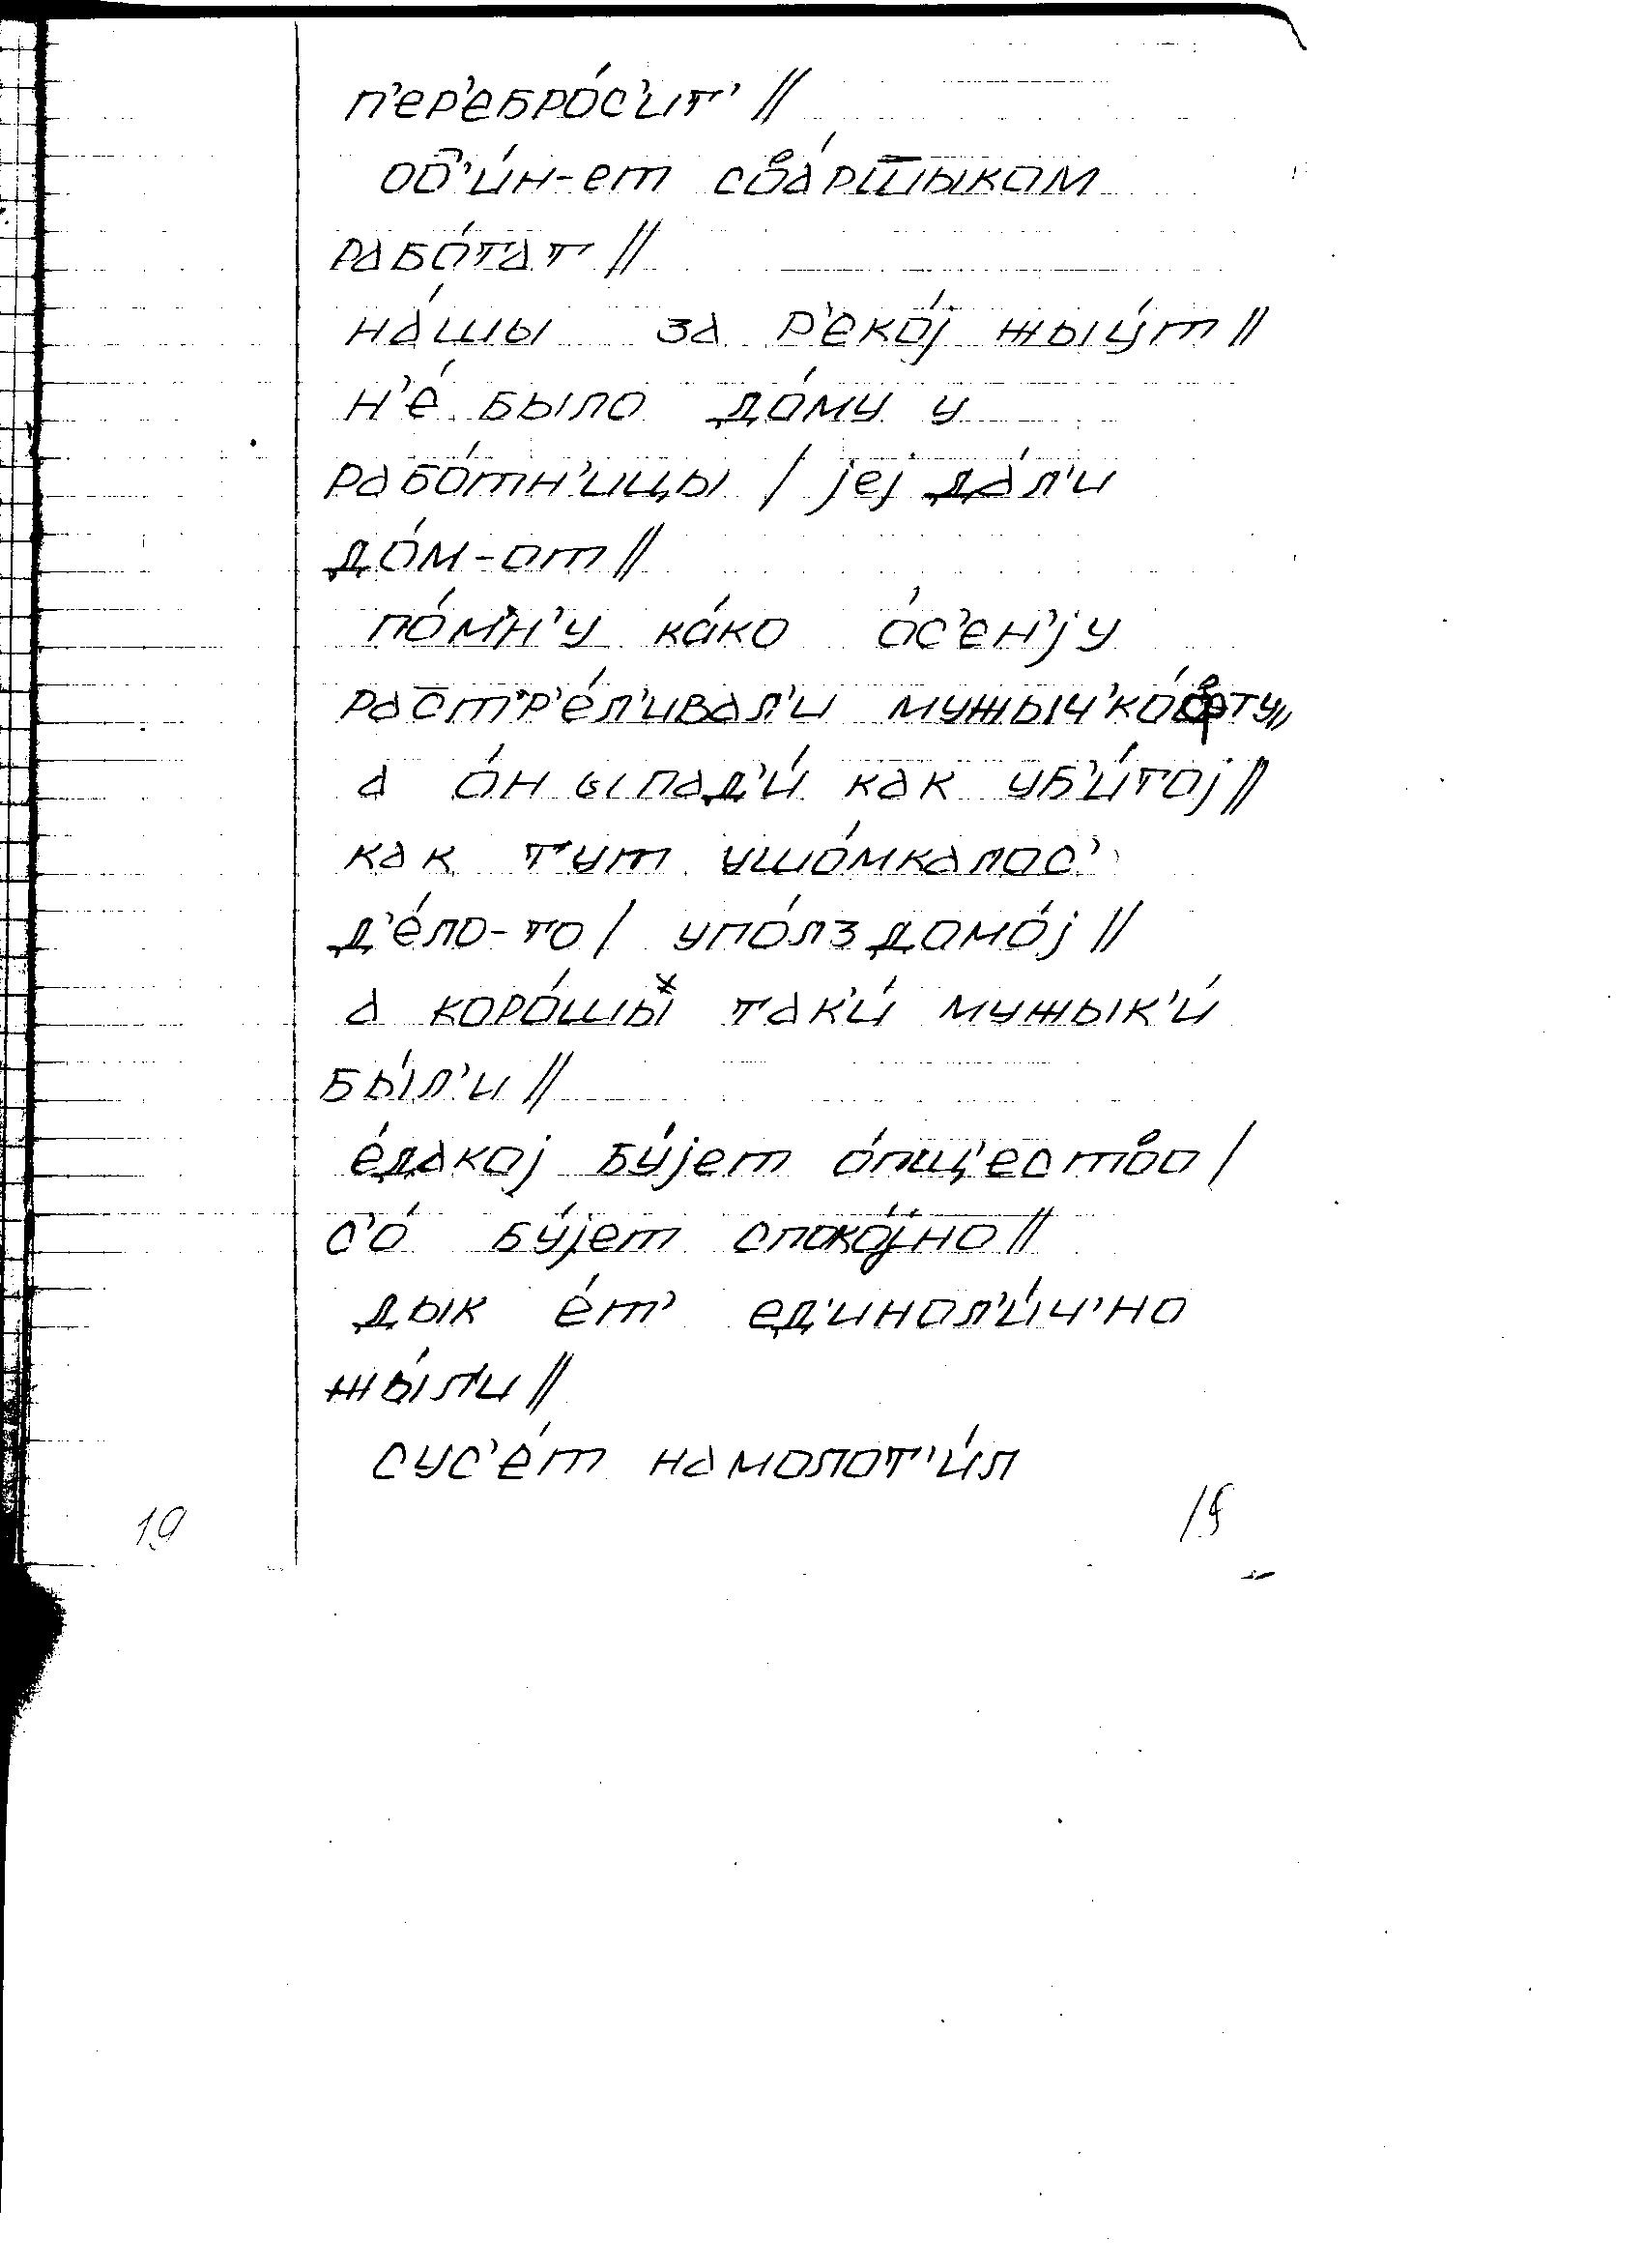 п'ер'ебро́с'ит' //
од'и́н-ет сва́ршыком
рабо́тат //
на́шы за р'еко́ј жыу́т //
н'е́ было до́му у
рабо́тн'ицы / јеј да́л'и
до́м-от //
по́мн'у ка́ко о́с'ен'ју
растр'е́л'ивал'и мужыч'ко́ф ту //
а о́н ы пад'и́ как уб'и́тој //
как тут ушо́мкалос'
д'е́ло-то / упо́лз домо́ј //
а хоро́шы так'и́ мужык'и́
бы́л'и //
е́дакој бу́јет о́пщ'ество /
с'о́ бу́јет споко́јно //
дык е́т' ед'инол'и́ч'но
жы́л'и //
сус'е́т намолот'и́л
19